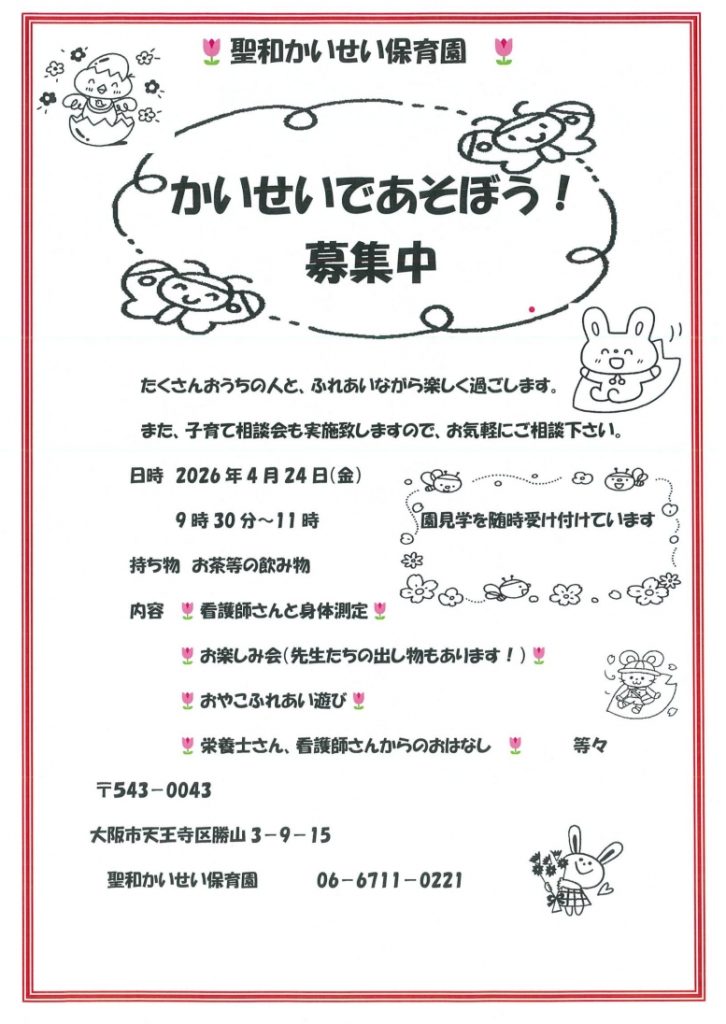 🌷聖和かいせい保育園 🌷
かいせいであそぼう！
募集中
たくさんおうちの人と、ふれあいながら楽しく過ごします。
また、子育て相談会も実施致しますので、お気軽にご相談下さい。
日時 2026年4月24日(金)
9時30分～11時
園見学を随時受け付けています
持ち物 お茶等の飲み物
内容 🌷看護師さんと身体測定🌷
🌷お楽しみ会(先生たちの出し物もあります！)🌷
🌷おやこふれあい遊び🌷
🌷栄養士さん、看護師さんからのおはなし 🌷 等々
〒543－0043
大阪市天王寺区勝山3－9－15
聖和かいせい保育園 06－6711－0221